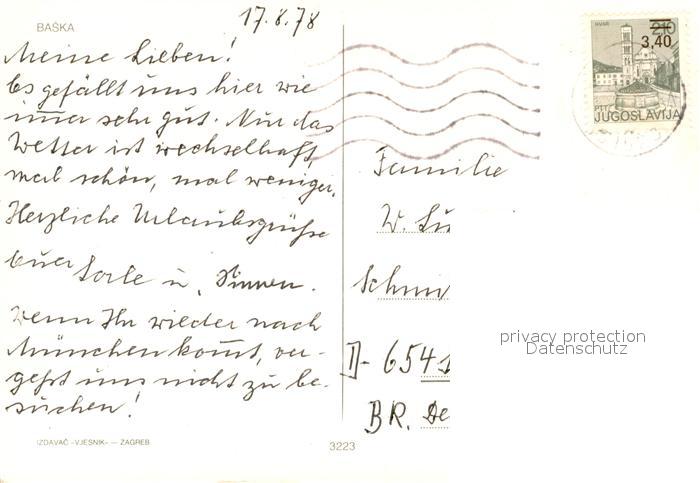 BAŠKA
17.8.78
Meine Lieben!
Es gefällt uns hier wie
immer sehr gut. Nur das
Wetter ist wechselhaft,
mal schön, mal weniger.
Herzliche Urlaubsgrüße
Euer
u.
Wenn Ihr wieder nach
München kommt, ver-
geßt uns nicht zu be-
suchen!
IZDAVAČ «VJESNIK» — ZAGREB
3223
HVAR
2,10
3,40
PTT
JUGOSLAVIJA
Familie
W. Lu
Schmi
D- 6541
BR. De
privacy protection
Datenschutz